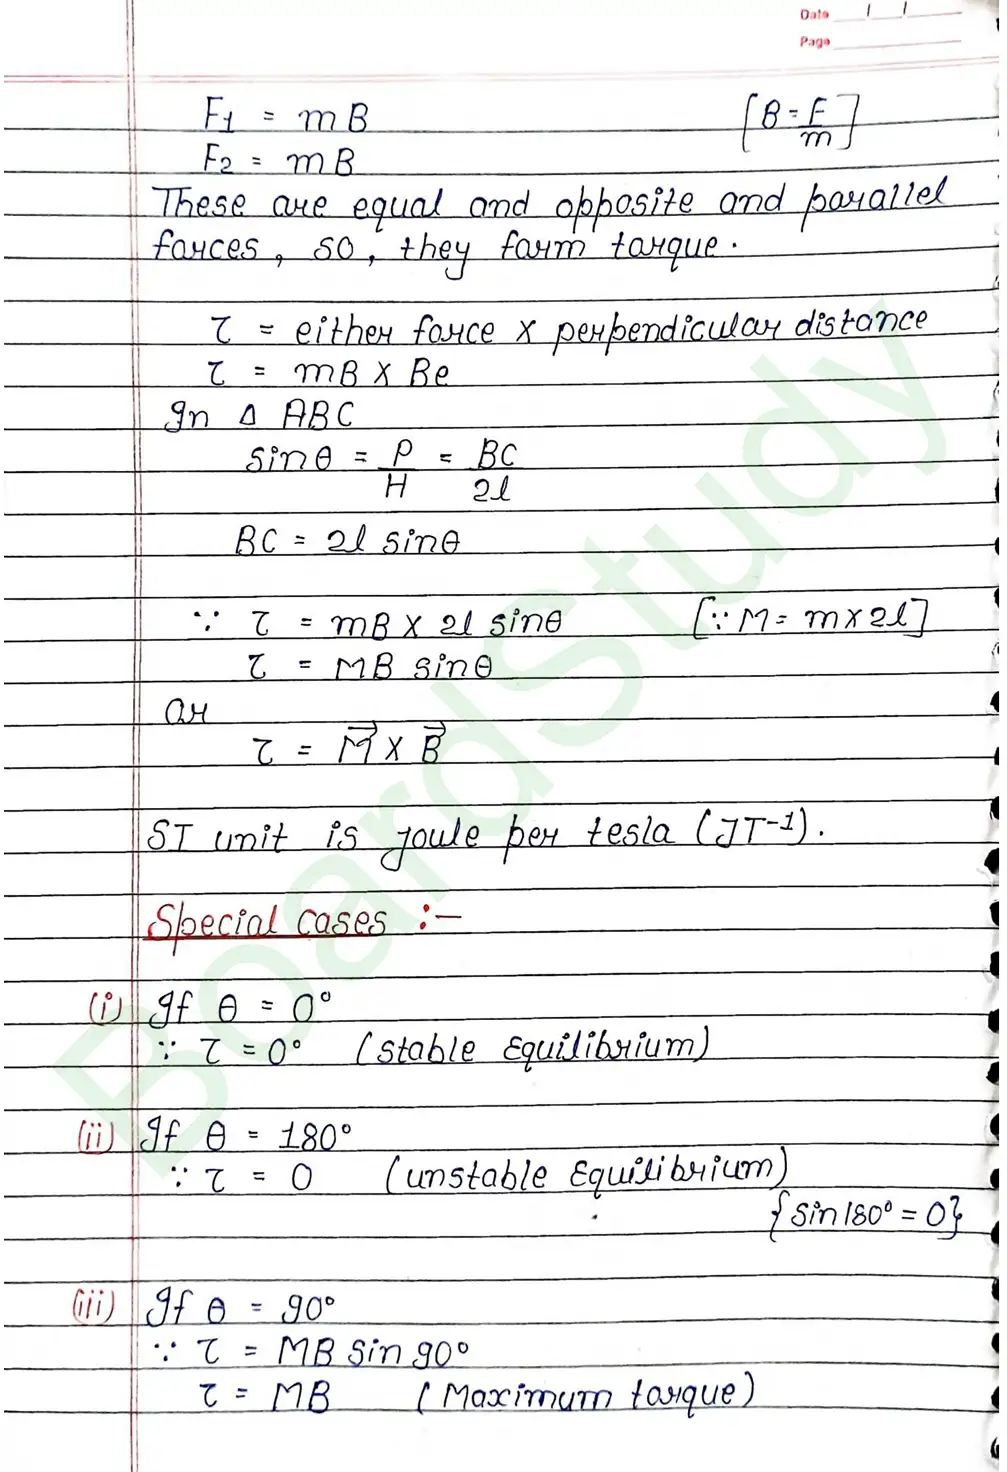 Date / /
Page
F1 = mB [B = F/m]
F2 = mB
These are equal and opposite and parallel
forces, so, they form torque.
τ = either force × perpendicular distance
τ = mB × Be
In Δ ABC
sinθ = P/H = BC/2l
BC = 2l sinθ
∵ τ = mB × 2l sinθ [∵ M = m × 2l]
τ = MB sinθ
or
τ = M⃗ × B⃗
SI unit is joule per tesla (JT⁻¹).
Special Cases :-
(i) If θ = 0°
∵ τ = 0° (stable Equilibrium)
(ii) If θ = 180°
∵ τ = 0 (unstable Equilibrium)
{sin 180° = 0}
(iii) If θ = 90°
∵ τ = MB sin 90°
τ = MB (Maximum torque)
BoardStudy